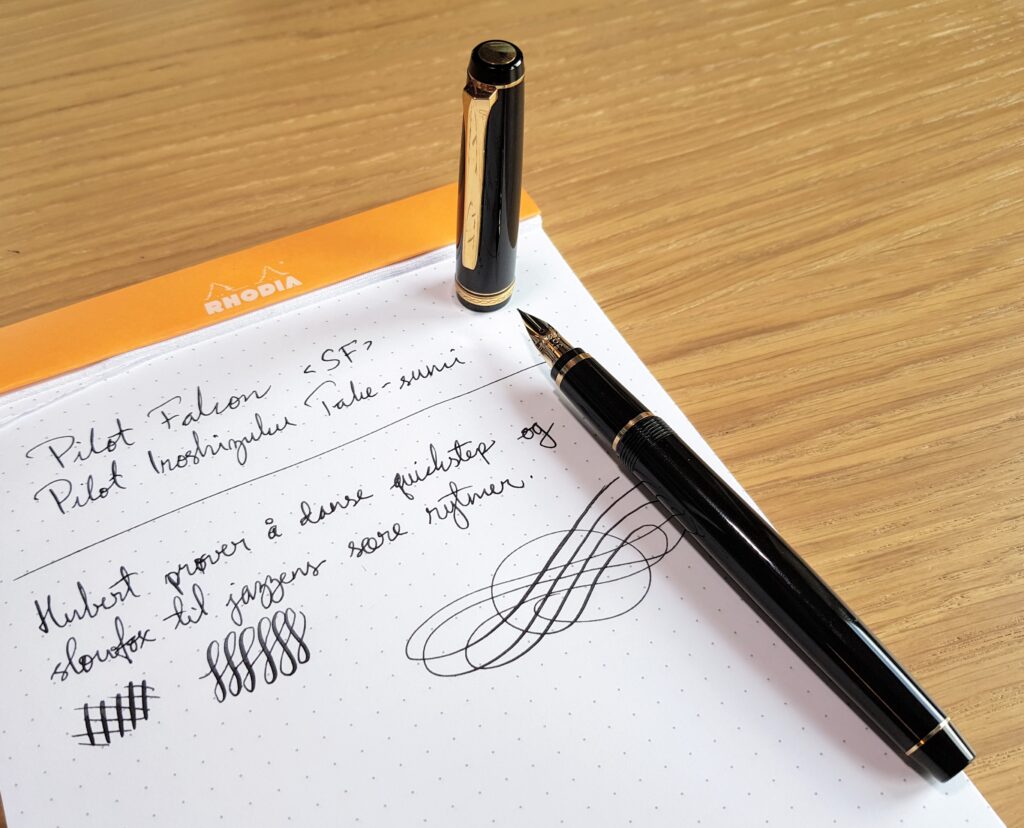 RHODIA
Pilot Falcon <SF>
Pilot Iroshizuku Take-sumi
Hubert prøver å danse quickstep og
slowfox til jazzens sære rytmer.